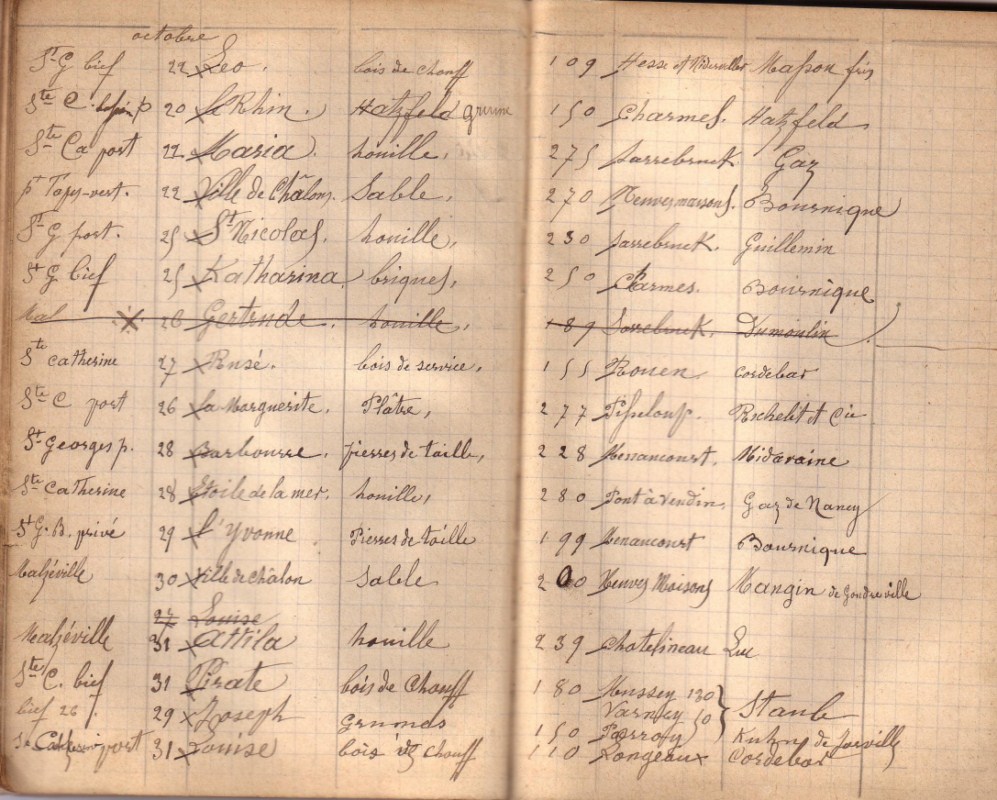 octobre
St G bief 22 Leo. bois de chauff 109 Hesse et Mason frs
Ste C. p 20 Le Rhin. Hatzfeld 150 Charmes. Hatzfeld
Ste Ca port 22 Maria. houille, 275 Sarrebruck Gaz
pt Tapis-vert. 22 Ville de Châlons. Sable, 270 Neuves maisons. Bournique
St G port. 25 St Nicolas. houille, 230 Sarrebruck. Guillemin
St G bief 25 Katharina briques, 250 Charmes. Bournique
Mal 26 Gertrude. houille, 189 Sarrebruck. Dumoulin
Ste Catherine 27 Rusé. bois de service, 155 Rouen Cordebar
Ste C port 26 La Marguerite. Plâtre, 277 Pisseloup. et Cie
St Georges p. 28 Barbourre. pierres de taille, 228 Menaucourt. Midavaine
Ste Catherine 28 Etoile de la mer. houille, 280 Pont à Vendin. Gaz de Nancy
St G. B. privé 29 l'Yvonne Pierres de taille 199 Menaucourt Bournique
Malzéville 30 Ville de Châlon Sable 200 Neuves Maisons Mangin de Gondreville
27 Louise
Malzéville 31 Attila houille 239 Chatelineau Luc
Ste C. bief 31 Pirate bois de Chauff 180 Mussey 130
Varney 50 Staub
bief 26. 29 Joseph 150 Parroy de Jarville
Ste Catherine port 31 Louise bois de chauff 110 Longeaux Cordebar